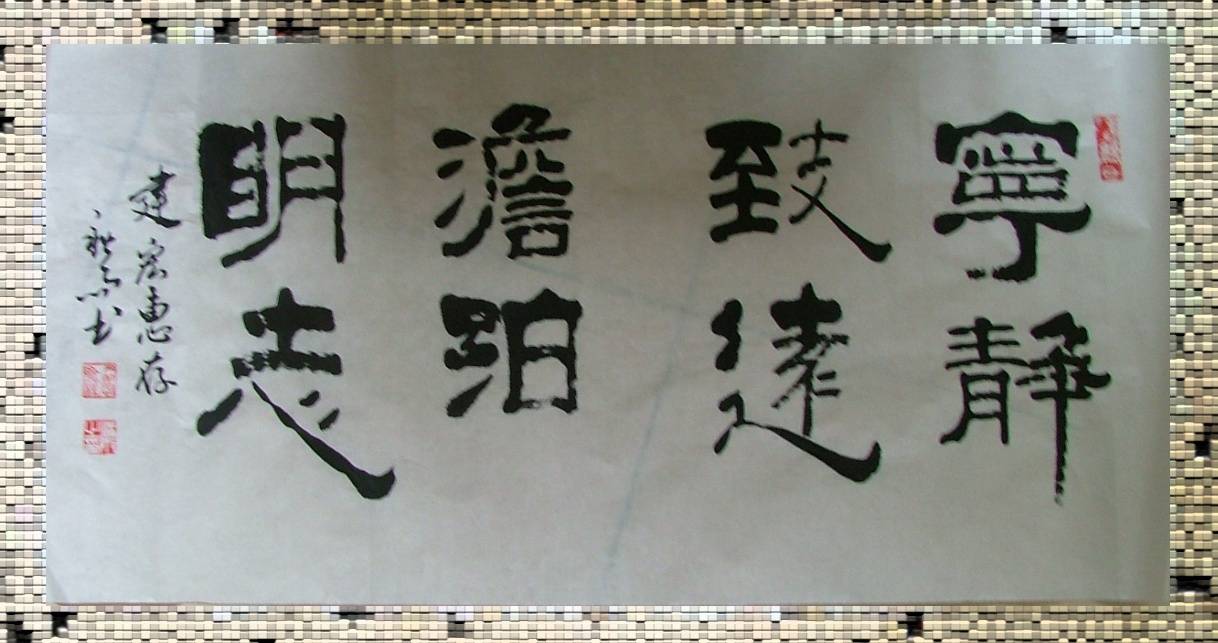 寧靜
致遠
澹泊
明志
建宏惠存